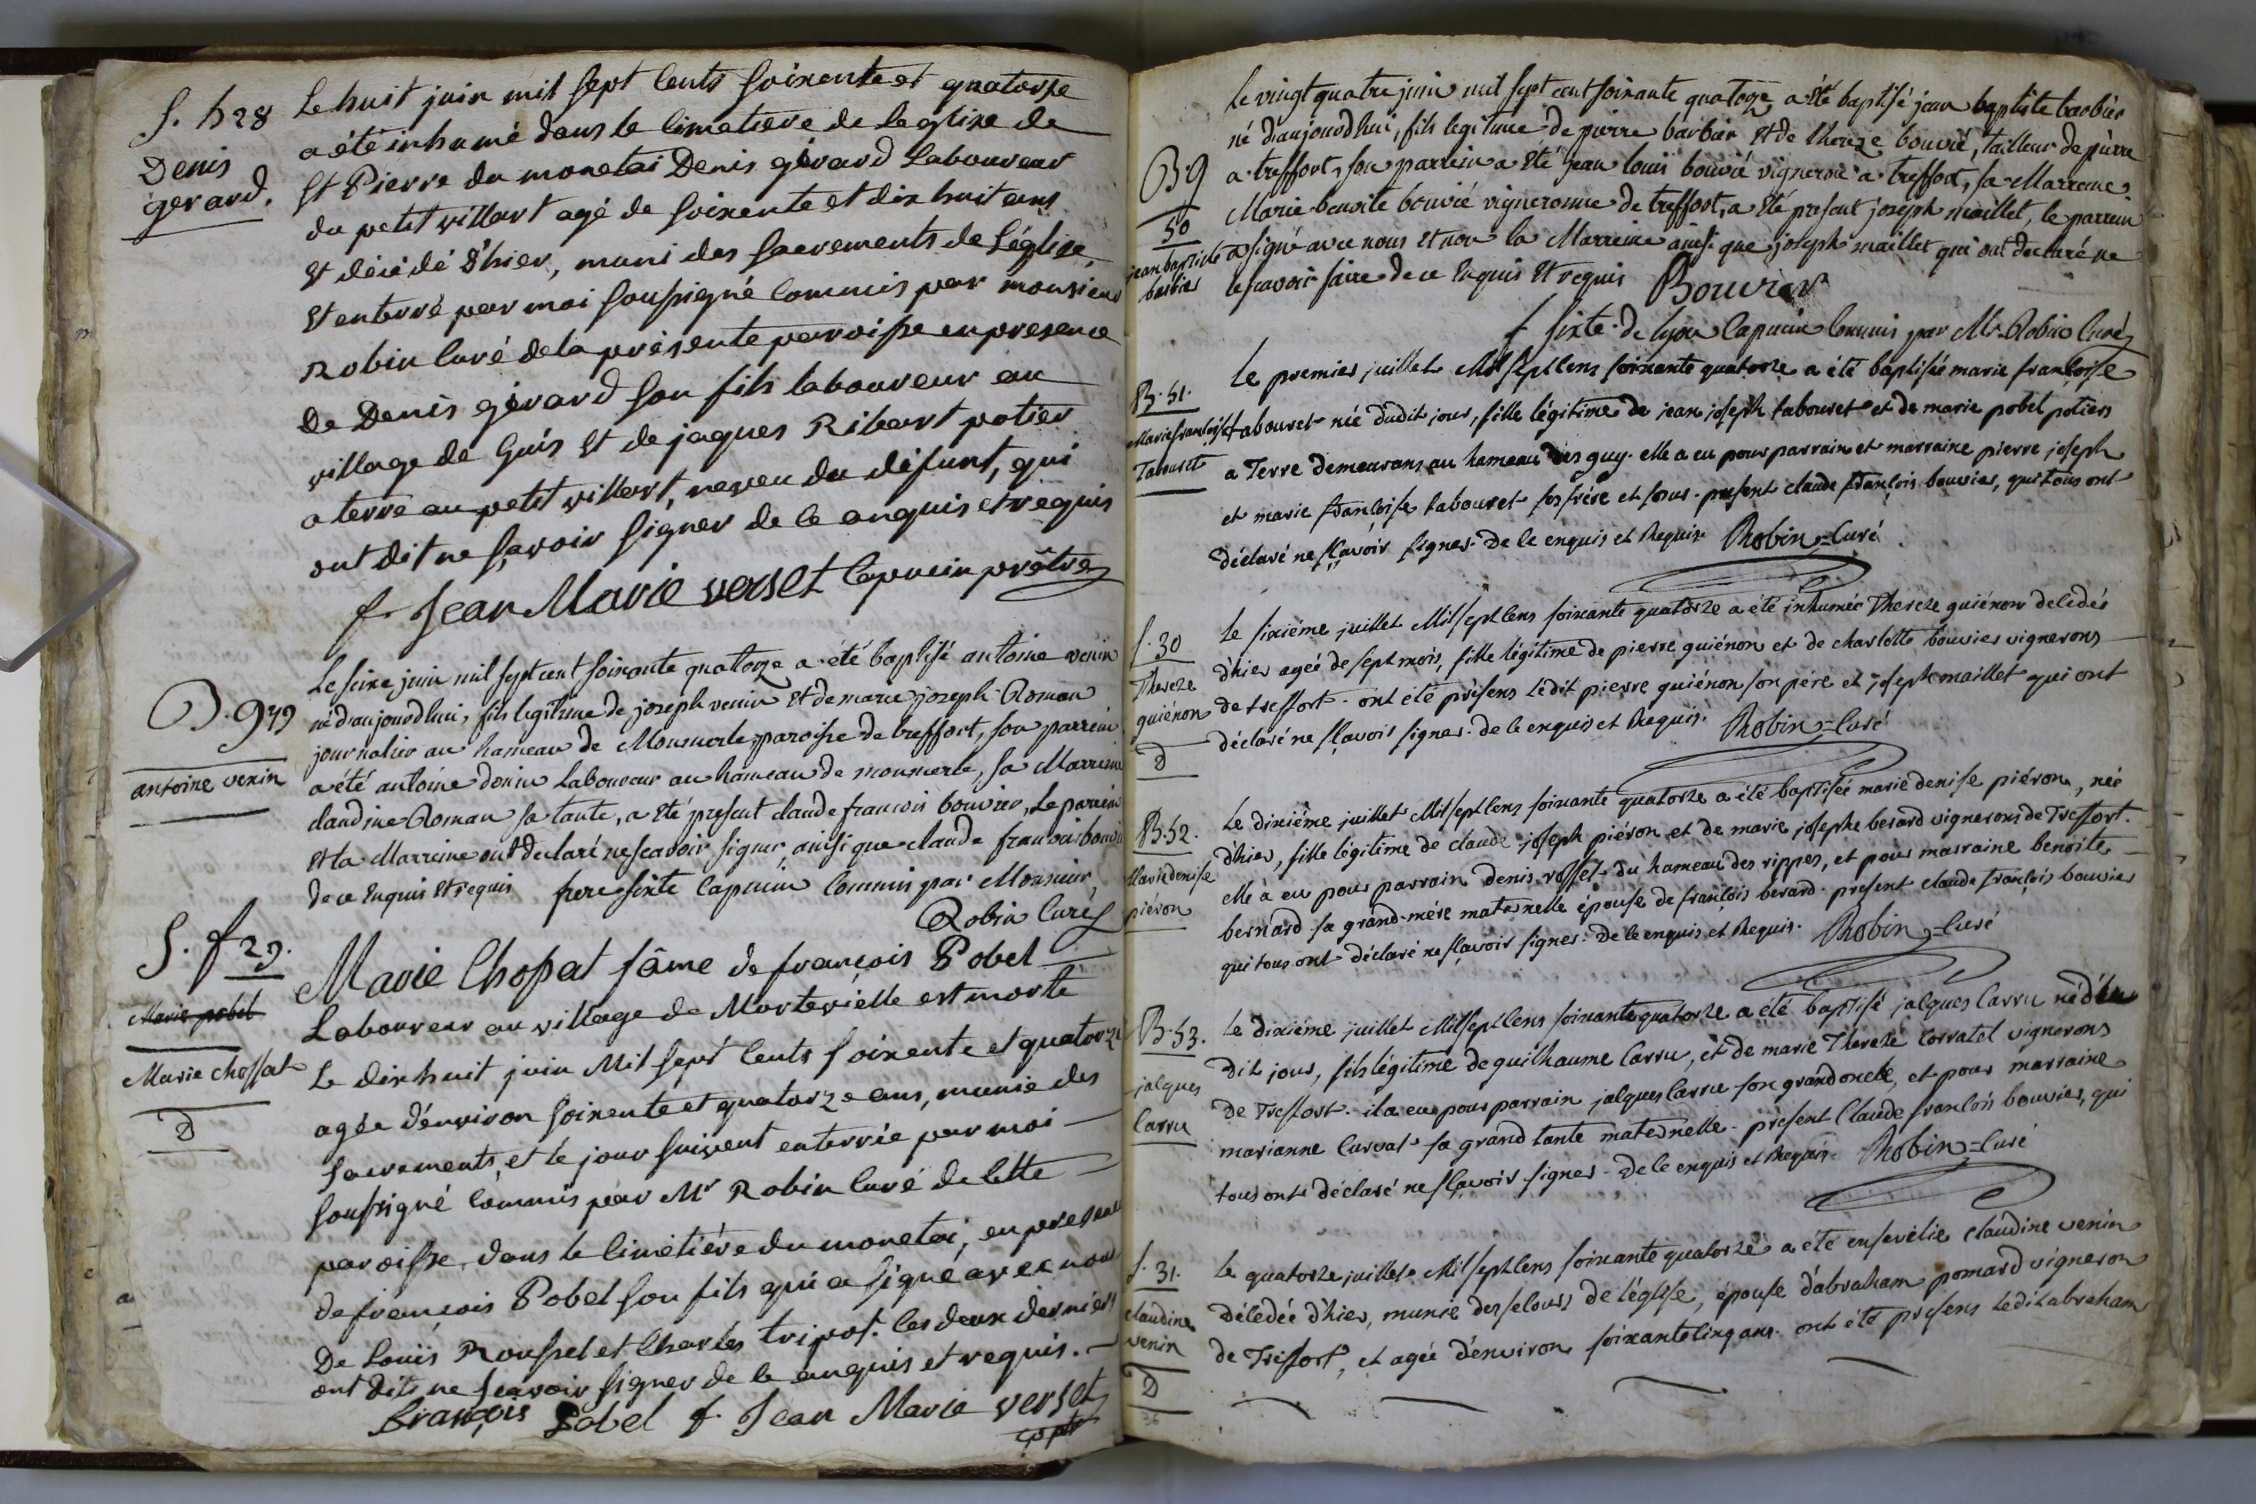 S. h 28
Denis
gerard.
Le huit juin mil sept cents soixente et quatorse
a été inhumé dans le cimetiere de leglise de
St Pierre du monetai Denis gérard laboureur
du petit villart agé de soixente et dix huit ans
et décédé d'hier, muni des sacrements de l'église,
et enterré par moi soussigné commis par monsieur
Robin curé de la présente parroisse en presence
de Denis gérard son fils laboureur au
village de Guis et de jaques Ribart potier
a terre au petit villart, neveu du défunt, qui
ont dit ne sçavoir signer de ce enquis et requis
f. Jean Marie verset capucin prêtre
B. g 49
antoine venin
Le seize juin mil sept cent soixante quatorze a été baptisé antoine venin
né d'aujourdhui, fils legitime de joseph venin et de marie joseph Roman
journalier au hameau de Monmerle, paroisse de treffort, son parrein
a été antoine donin laboureur au hameau de monmerle, sa Marreine
claudine Roman sa tante, a été present claude francois bouvier, le parrein
et la Marreine ont declaré ne scavoir signer, ainsi que claude francoi bouvier
de ce enquis et requis frere sixte capucin commis par Monsieur
Robin curé
S. f 29.
Marie pobel
Marie chossat
D
Marie Chossat fâme de françois Pobel
Laboureur au village de Mortevielle est morte
Le dixhuit juin Mil sept cents soixente et quatorze
agée d'environ soixente et quatorze ans, munie des
sacrements, et le jour suivent enterrée par moi
soussigné commis par Mr Robin curé de cette
paroisse, dans le cimetiére du monetai, en presence
de françois Pobel son fils qui a signé avec nous
De Louis Roussel et Charles tripot. les deux derniers
ont dits ne scavoir signer de ce enquis et requis.
françois Pobel f. Jean Marie verset
B g
50
jean baptiste
barbier
Le vingt quatre juin mil sept cent soixante quatorze, a été baptisé jean baptiste barbier
né d'aujourdhui, fils legitime de pierre barbier et de thereze bouvié, tailleur de pierre
a treffort, son parrein a été jean louis bouvié vigneron a treffort, sa Marreine
Marie benoite bouvié vigneronne de treffort, a été present joseph maillet, le parrein
a signé avec nous et non la Marreine ainsi que joseph maillet qui ont declaré ne
le scavoir faire de ce enquis et requis Bouvier
f sixte de lyon capucin commis par Mr Robin Curé
B. 51.
Marie françoise
Tabouret
Le premier juillet Mil sept cens soixante quatorze a été baptisée marie françoise
tabouret née dudit jour, fille légitime de jean joseph tabouret et de marie pobel potiers
a Terre demeurans au hameau des guy. elle a eu pour parrain et marraine pierre joseph
et marie françoise tabouret ses frére et sœur. present claude françois bouvier, qui tous ont
déclaré ne sçavoir signer. De ce enquis et Requis. Robin = Curé
S. 30
Thereze
guiénon
D
Le sixiéme juillet Mil sept cens soixante quatorze a été inhumée Thereze guiénon décédée
d'hier ageé de sept mois, fille légitime de pierre guiénon et de charlotte bouvier vignerons
de treffort. ont été présens ledit pierre guiénon son pére et joseph maillet qui ont
déclaré ne sçavoir signer. de ce enquis et Requis. Robin = Curé
B. 52.
Marie denise
piéron
Le dixiéme juillet Mil sept cens soixante quatorze a été baptisée marie denise piéron, née
d'hier, fille légitime de claude joseph piéron et de marie josephe berard vignerons de Treffort.
elle a eu pour parrain denis rosset du hameau des rippes, et pour marraine benoite
bernard sa grand-mére maternelle épouse de françois berard. present claude françois bouvier
qui tous ont déclaré ne sçavoir signer. De ce enquis et Requis. Robin = Curé
B. 53.
jacques
Carru
Le dixiéme juillet Mil sept cens soixante quatorze a été baptisé jacques Carru né du
dit jour, fils légitime de guilhaume Carru, et de marie Thereze Corratel vignerons
de Treffort. il a eu pour parrain jacques Carru son grand oncle, et pour marraine
marianne curvat sa grand tante maternelle. présent Claude françois bouvier, qui
tous ont déclaré ne sçavoir signer. De ce enquis et Requis. Robin = Curé
S. 31.
claudine
venin
D
36
Le quatorze juillet Mil sept cens soixante quatorze a été ensevelie claudine venin
décédée d'hier, munie des secours de l'église, épouse d'abraham pomard vigneron
de Treffort, et agée d'environ soixante cinq ans. ont été presens ledit abraham